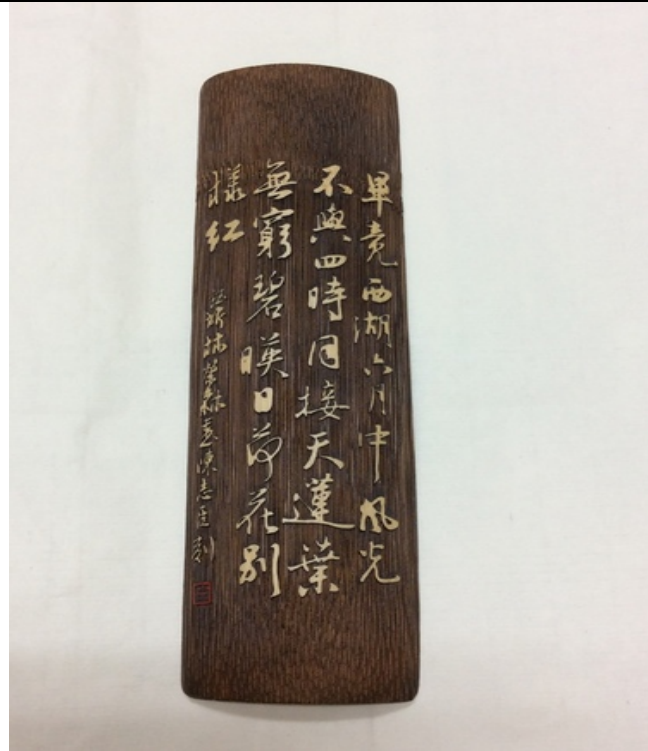 畢竟西湖六月中風光
不與四時同接天蓮葉
無窮碧暎日荷花別
樣紅
陳志臣刻